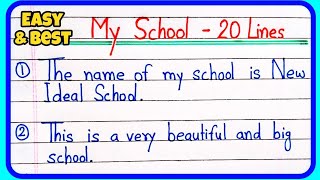 EASY
& BEST
My School - 20 Lines
① The name of my school is New
Ideal School.
② This is a very beautiful and big
school.